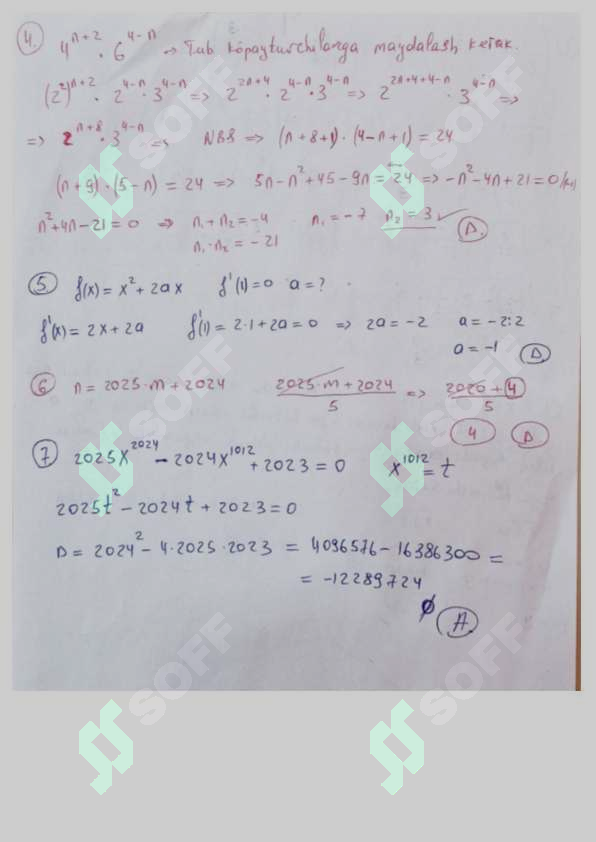 4. 4^{n+2} · 6^{4-n} → Tub kopayturchilarga maydalash kerak.
(2²)^{n+2} · 2^{4-n} · 3^{4-n} => 2^{2n+4} · 2^{4-n} · 3^{4-n} => 2^{2n+4+4-n} · 3^{4-n} =>
=> 2^{n+8} · 3^{4-n} => NBS => (n+8+1) · (4-n+1) = 24
(n+9) · (5-n) = 24 => 5n-n²+45-9n = 24 => -n²-4n+21=0
n²+4n-21=0 => n₁+n₂=-4 n₁=-7 n₂=3 ✓ D.
n₁·n₂=-21
5 f(x)=x²+2ax f'(1)=0 a=?
f'(x)=2x+2a f'(1)=2·1+2a=0 => 2a=-2 a=-2:2
a=-1 D
6 n=2025·m+2024 2025·m+2024/5 => 2020+4/5
4 D
7 2025x^{2024} - 2024x^{1012} + 2023=0 x^{1012}=t
2025t² - 2024t + 2023=0
D = 2024² - 4·2025·2023 = 4096576 - 16386300 =
= -12289724
∅ A
SOFF
SOFF
SOFF
SOFF
SOFF
SOFF